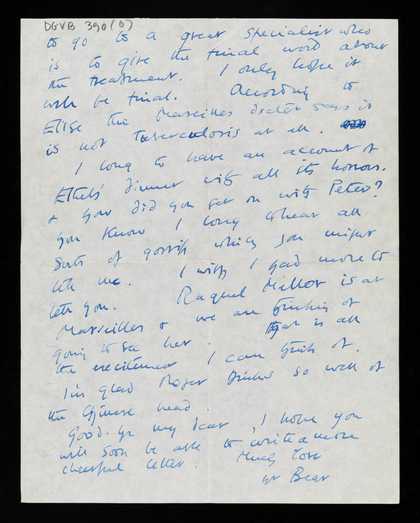 DGVB 390 (6)
to go to a great specialist who
is to give the final word about
the treatment. I only hope it
will be final. According to
Elise the Marseilles doctor says it
is not tuberculosis at all.
I long to have an account of
Ethel's dinner with all its horrors.
& how did you get on with Feteo?
You know I long to hear all
sorts of gossip which you might
tell me. I wish I had more to
tell you. Raquel Meller is at
Marseilles & we are thinking of
going to see her. That is all
the excitement I can think of.
I'm glad Roger thinks so well of
the Chinese head.
Good-bye my dear, I hope you
will soon be able to write a more
cheerful letter. Much love
yr Bear